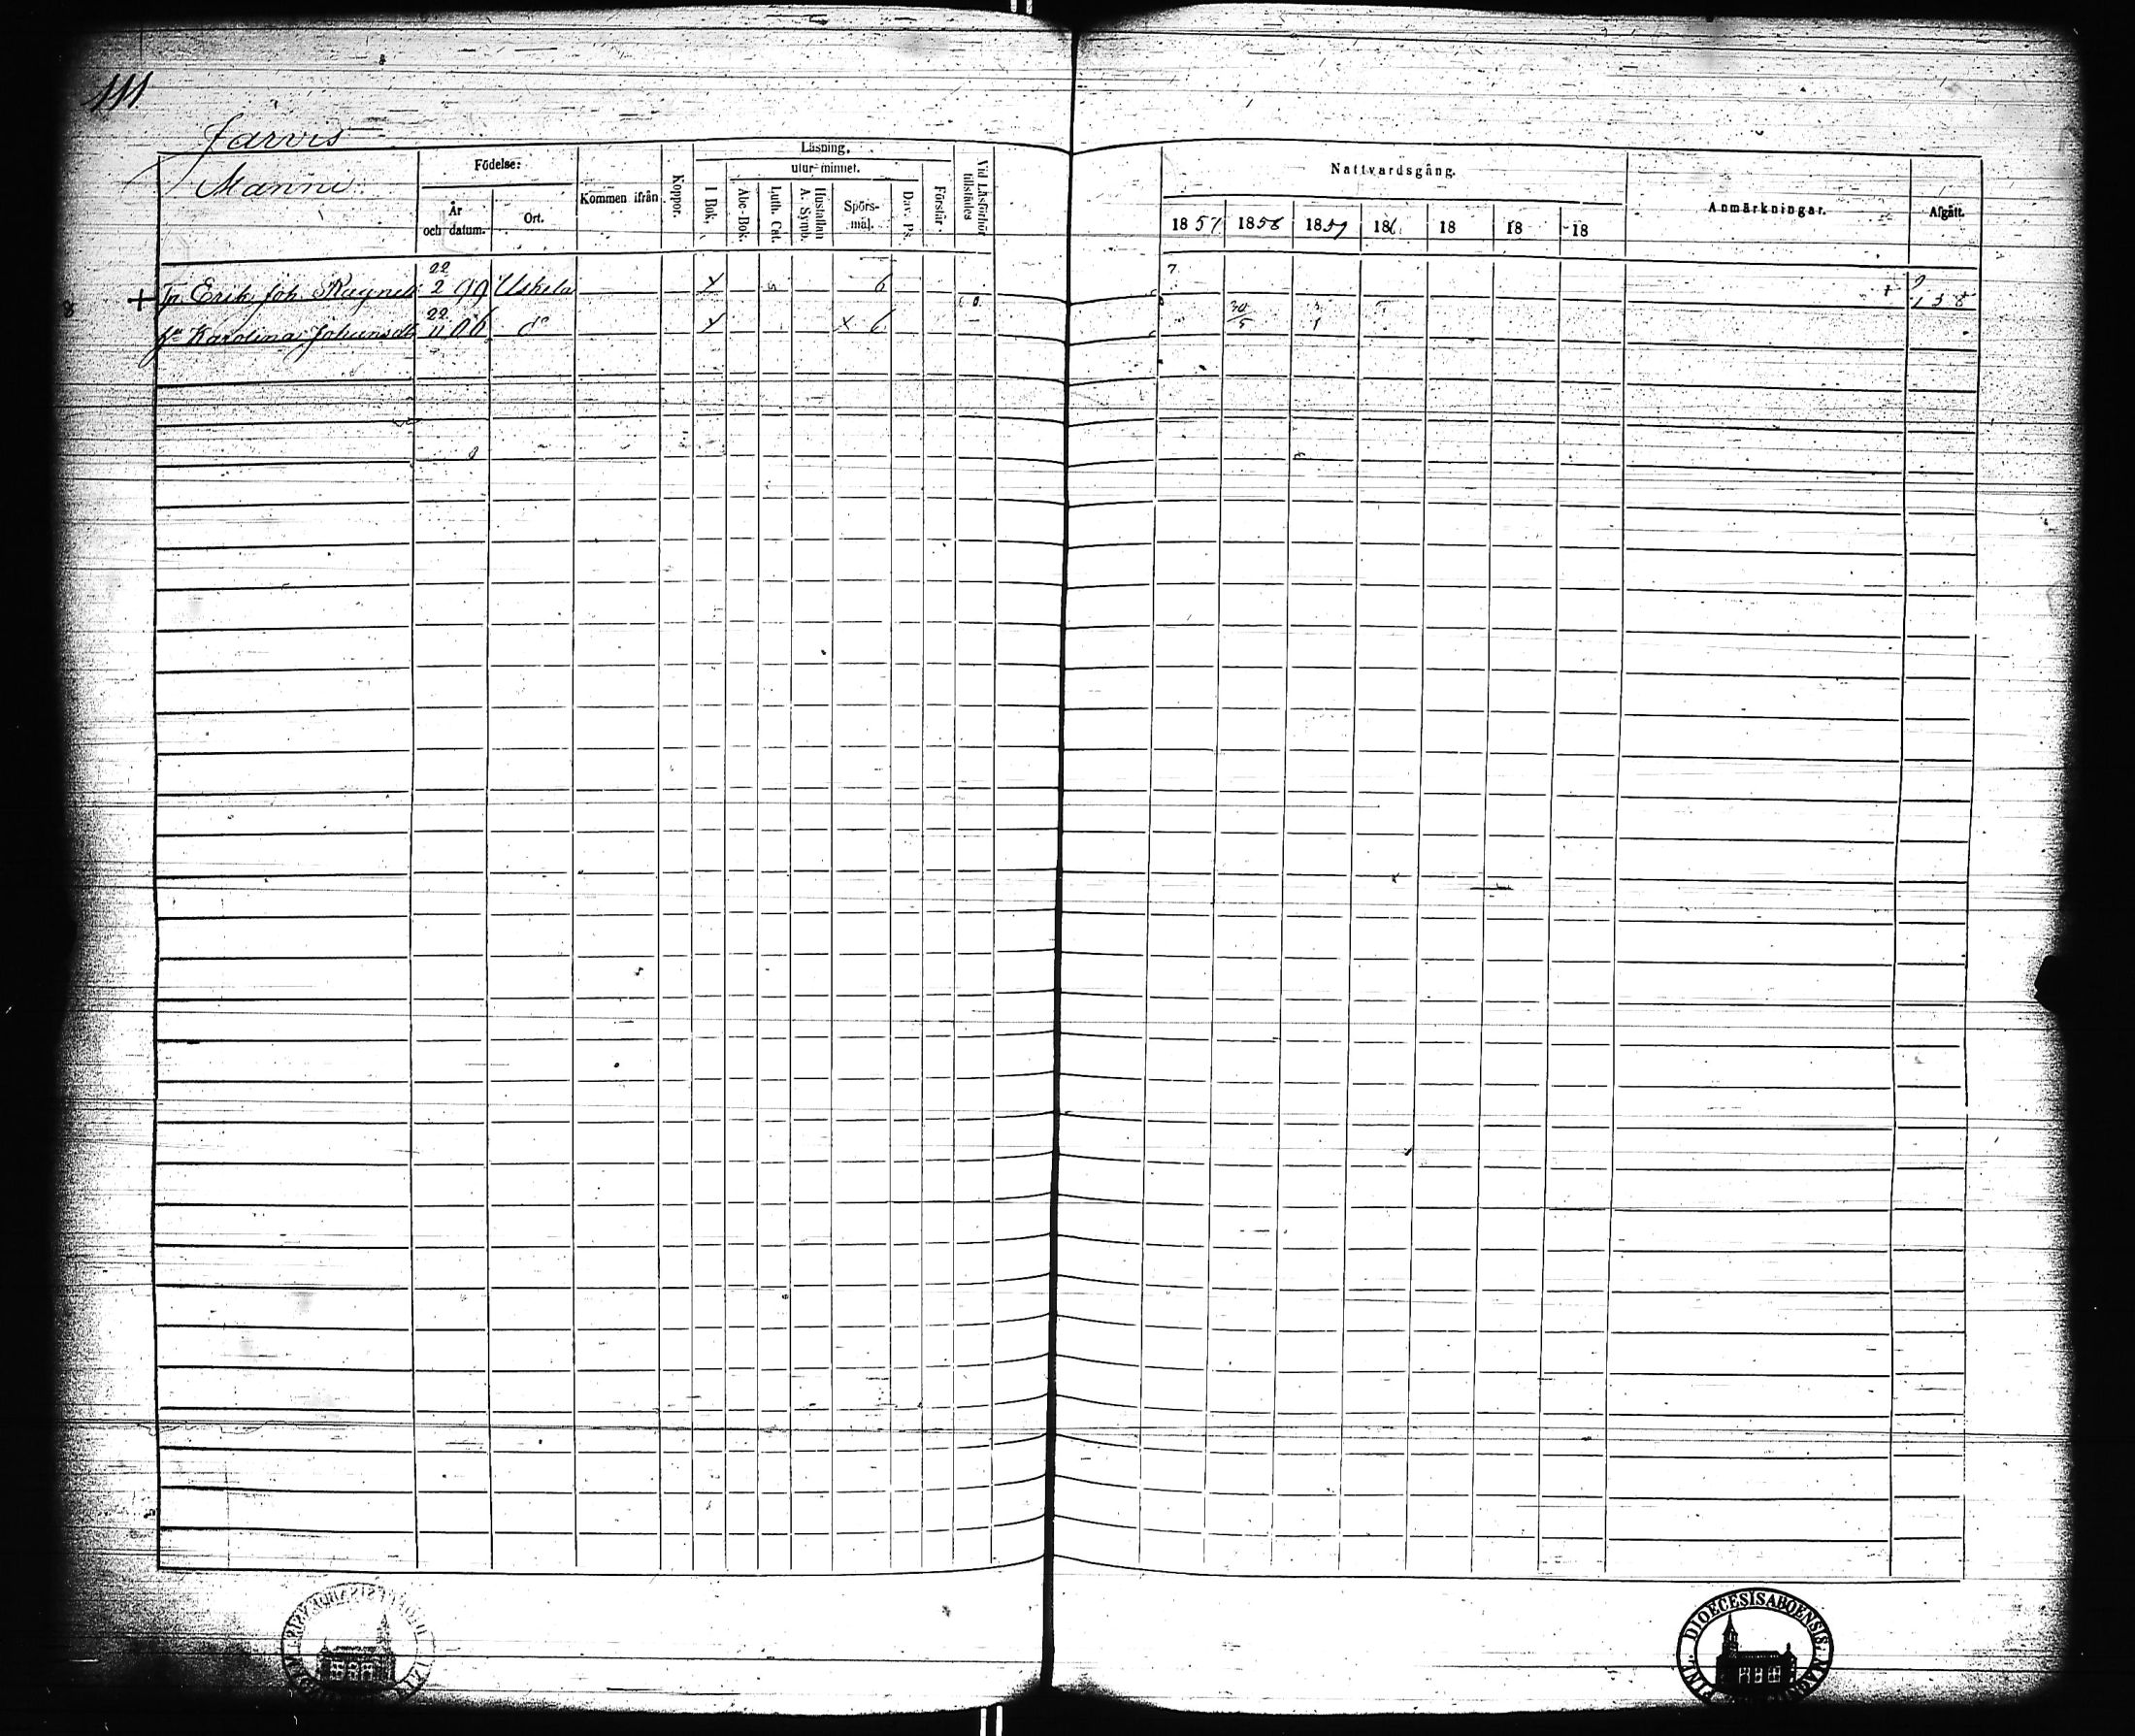 111
Jarvis
Manni
Födelse:
År och datum.
Ort.
Kommen ifrån
Koppor.
Läsning,
I Bok,
utur minnet.
Abc-Bok.
Luth. Cat.
Hustaflan A. Symb.
Spörsmål.
Dav. Ps.
Förstår.
Vid Läsförhör tillstädes
Nattvardsgång.
1857
1858
1859
186
18
18
18
Anmärkningar.
Afgått.
8 + Erik Joh. 22 2 99 Uskela 6 7
Karolina Johansdr 22 11 06 do 6 30 5
DIOECESIS ABOENSIS